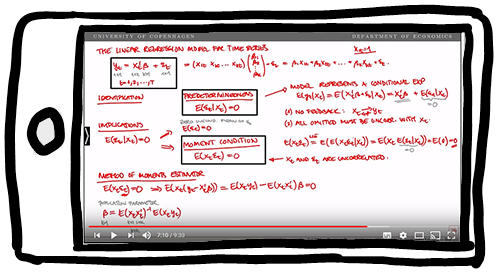 UNIVERSITY OF COPENHAGEN
DEPARTMENT OF ECONOMICS
THE LINEAR REGRESSION MODEL FOR TIME SERIES
IDENTIFICATION
PREDETERMINEDNESS
E(εt|xt)=0
MODEL REPRESENTS A CONDITIONAL EXP
E(yt|xt) = E(xt'β+εt|xt) = xt'β + E(εt|xt)
=0
(1) NO FEEDBACK:
(2) ALL OMITTED MUST BE UNCORR. WITH xt.
IMPLICATIONS
E(εt|xt)=0
E(εt)=0
MOMENT CONDITION
E(xtεt)=0
E(xtεt) = E(E(xtεt|xt)) = E(xt E(εt|xt)) = E(0) = 0
xt AND εt ARE UNCORRELATED.
METHOD OF MOMENTS ESTIMATOR
E(xtεt)=0 ⇒ E(xt(yt-xt'β)) = E(xtyt) - E(xtxt')β = 0
POPULATION PARAMETER
β = E(xtxt')⁻¹ E(xtyt)
7:10 / 9:33